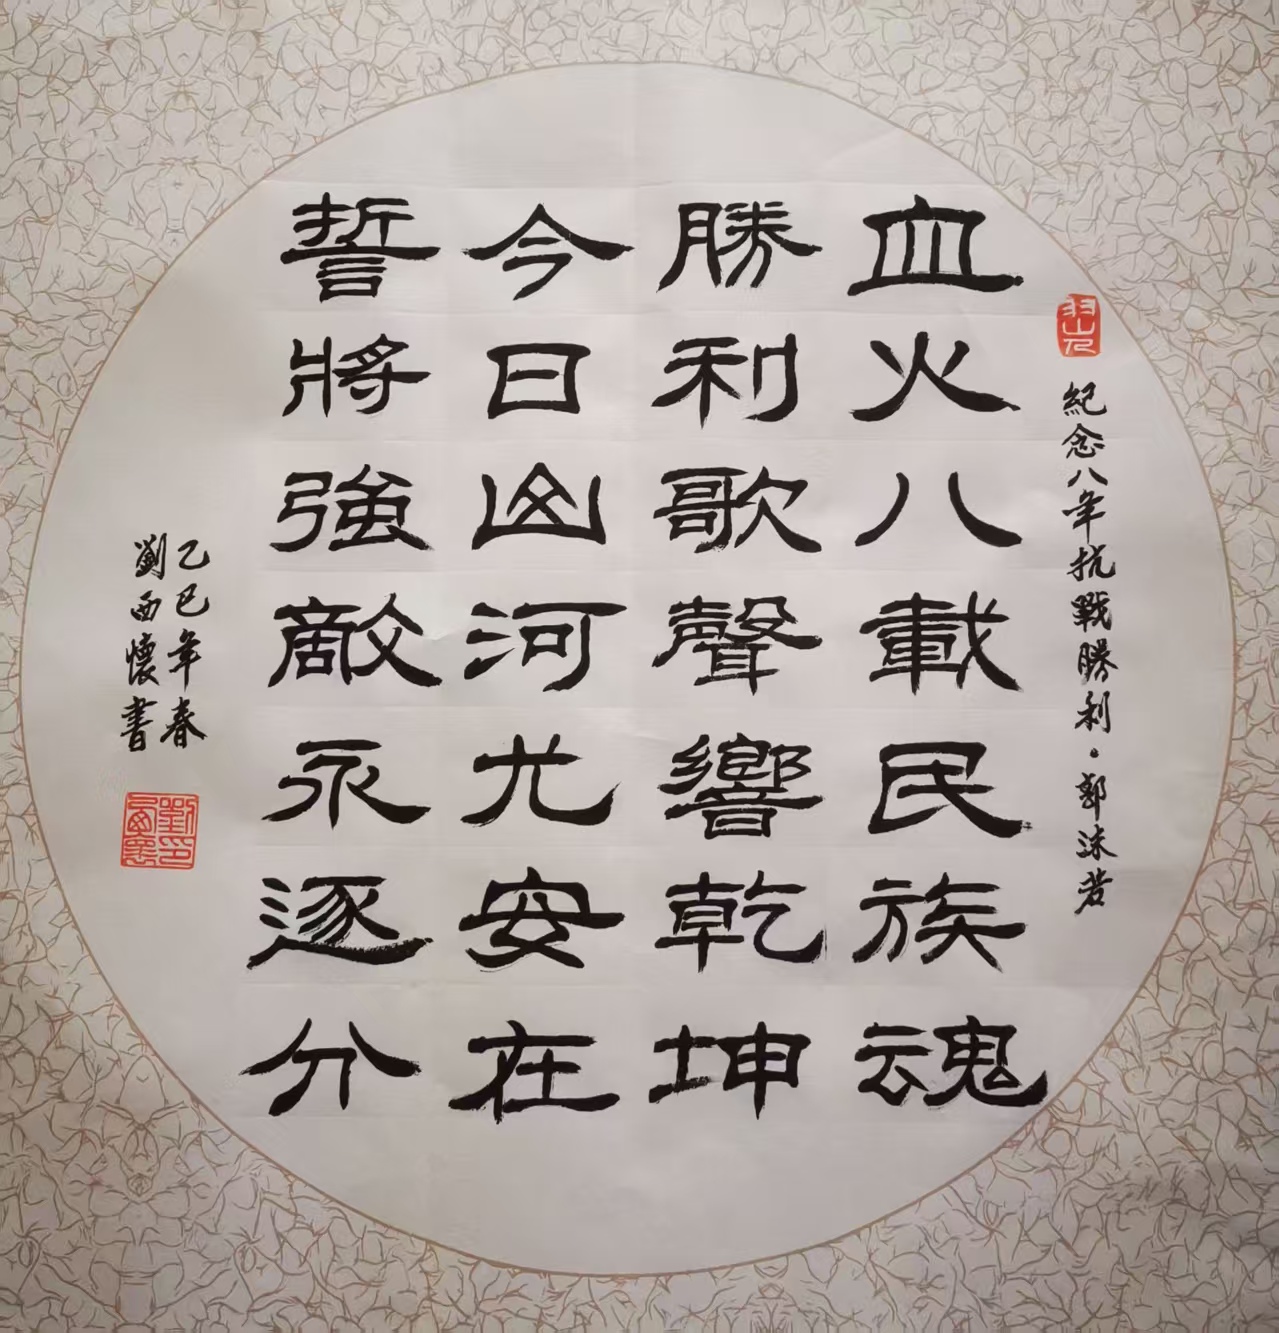 紀念八年抗戰勝利·郭沫若
血火八載民族魂
勝利歌聲響乾坤
今日山河尤安在
誓將強敵永逐分
乙巳年春
劉西懷書